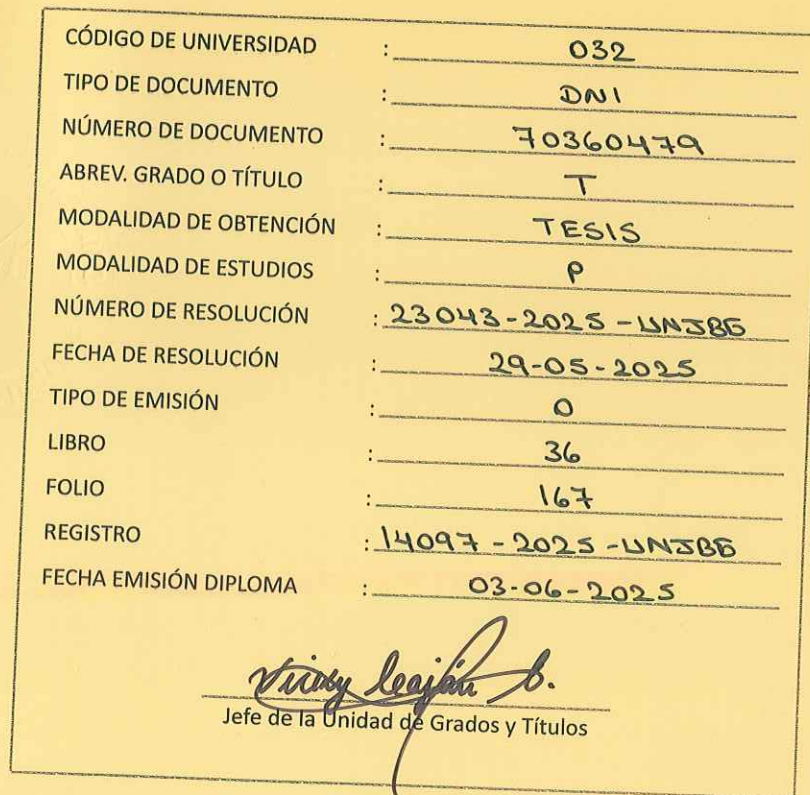 CÓDIGO DE UNIVERSIDAD : 032
TIPO DE DOCUMENTO : DNI
NÚMERO DE DOCUMENTO : 70360479
ABREV. GRADO O TÍTULO : T
MODALIDAD DE OBTENCIÓN : TESIS
MODALIDAD DE ESTUDIOS : P
NÚMERO DE RESOLUCIÓN : 23043-2025-UNJBG
FECHA DE RESOLUCIÓN : 29-05-2025
TIPO DE EMISIÓN : O
LIBRO : 36
FOLIO : 167
REGISTRO : 14097-2025-UNJBG
FECHA EMISIÓN DIPLOMA : 03-06-2025
Jefe de la Unidad de Grados y Títulos